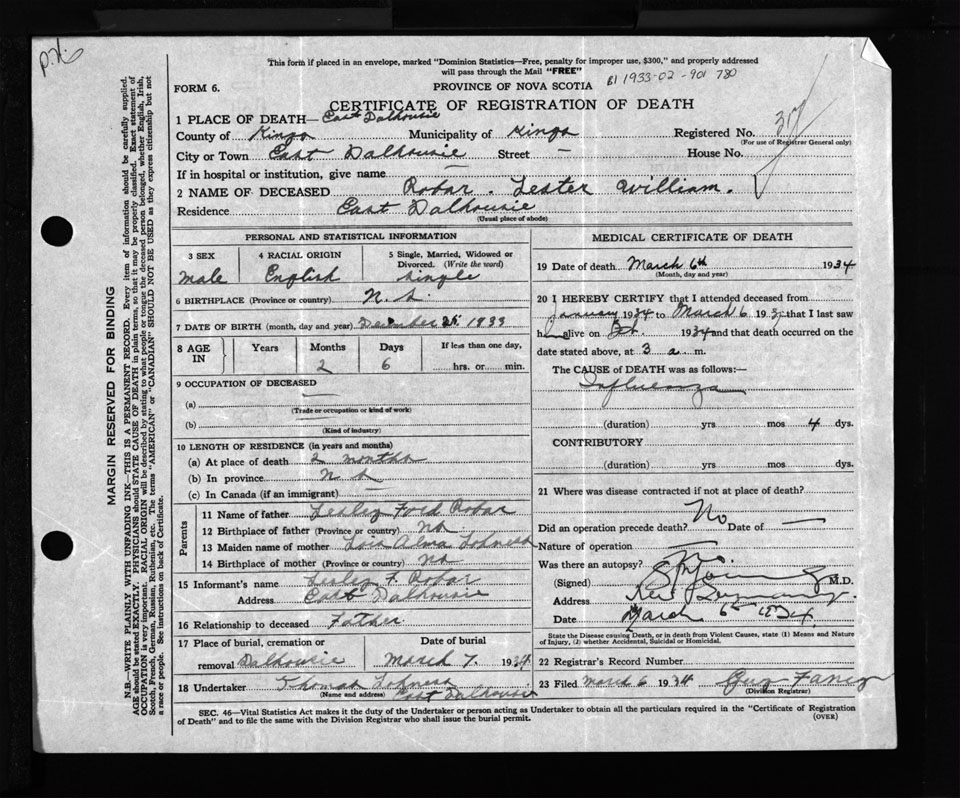 p.h.
This form if placed in an envelope, marked "Dominion Statistics—Free, penalty for improper use, $300," and properly addressed
will pass through the Mail "FREE"
B1 1933-02-901780
FORM 6.
PROVINCE OF NOVA SCOTIA
CERTIFICATE OF REGISTRATION OF DEATH
37
1 PLACE OF DEATH— East Dalhousie
County of Kings Municipality of Kings Registered No.
(For use of Registrar General only)
City or Town East Dalhousie Street — House No.
If in hospital or institution, give name —
2 NAME OF DECEASED Robar. Lester William.
Residence East Dalhousie
(Usual place of abode)
PERSONAL AND STATISTICAL INFORMATION
3 SEX 4 RACIAL ORIGIN 5 Single, Married, Widowed or
Divorced. (Write the word)
male English single
6 BIRTHPLACE (Province or country) N.S.
7 DATE OF BIRTH (month, day and year) December 1933
8 AGE IN Years Months Days If less than one day,
2 6 hrs. or min.
9 OCCUPATION OF DECEASED
(a) —
(Trade or occupation or kind of work)
(b)
(Kind of industry)
10 LENGTH OF RESIDENCE (in years and months)
(a) At place of death 2 months
(b) In province N S
(c) In Canada (if an immigrant) —
Parents
11 Name of father Robar
12 Birthplace of father (Province or country) NS
13 Maiden name of mother Alma
14 Birthplace of mother (Province or country) NS
15 Informant's name F. Robar
Address East Dalhousie
16 Relationship to deceased Father
17 Place of burial, cremation or Date of burial
removal Dalhousie March 7. 1934
18 Undertaker Thomas
(Name and address) East Dalhousie
MEDICAL CERTIFICATE OF DEATH
19 Date of death March 6th 1934
(Month, day and year)
20 I HEREBY CERTIFY that I attended deceased from
January 1934 to March 6 193 that I last saw
h alive on 1934 and that death occurred on
date stated above, at 3 a m.
The CAUSE OF DEATH was as follows:—
Influenza
(duration) yrs mos 4 dys.
CONTRIBUTORY
(duration) yrs mos dys.
21 Where was disease contracted if not at place of death?
Did an operation precede death? No Date of —
Nature of operation
Was there an autopsy? No
(Signed) M.D.
Address
Date March 6th 1934
State the Disease causing Death, or in death from Violent Causes, state (1) Means and Nature
of Injury, (2) whether Accidental, Suicidal or Homicidal.
22 Registrar's Record Number
23 Filed March 6 1934 Guy
(Division Registrar)
SEC. 46—Vital Statistics Act makes it the duty of the Undertaker or person acting as Undertaker to obtain all the particulars required in the "Certificate of Registration
of Death" and to file the same with the Division Registrar who shall issue the burial permit.
(OVER)
MARGIN RESERVED FOR BINDING
N.B.—WRITE PLAINLY WITH UNFADING INK—THIS IS A PERMANENT RECORD. Every item of information should be carefully supplied.
AGE should be stated EXACTLY. PHYSICIANS should STATE CAUSE OF DEATH in plain terms, so that it may be properly classified. Exact statement of
OCCUPATION is very important. RACIAL ORIGIN will be described by stating to what people or tongue the deceased person belonged, whether English, Irish,
Scotch, French, German, Russian, Ruthenian, etc. The terms "AMERICAN" or "CANADIAN" SHOULD NOT BE USED as they express citizenship but not
a race or people. See instructions on back of Certificate.